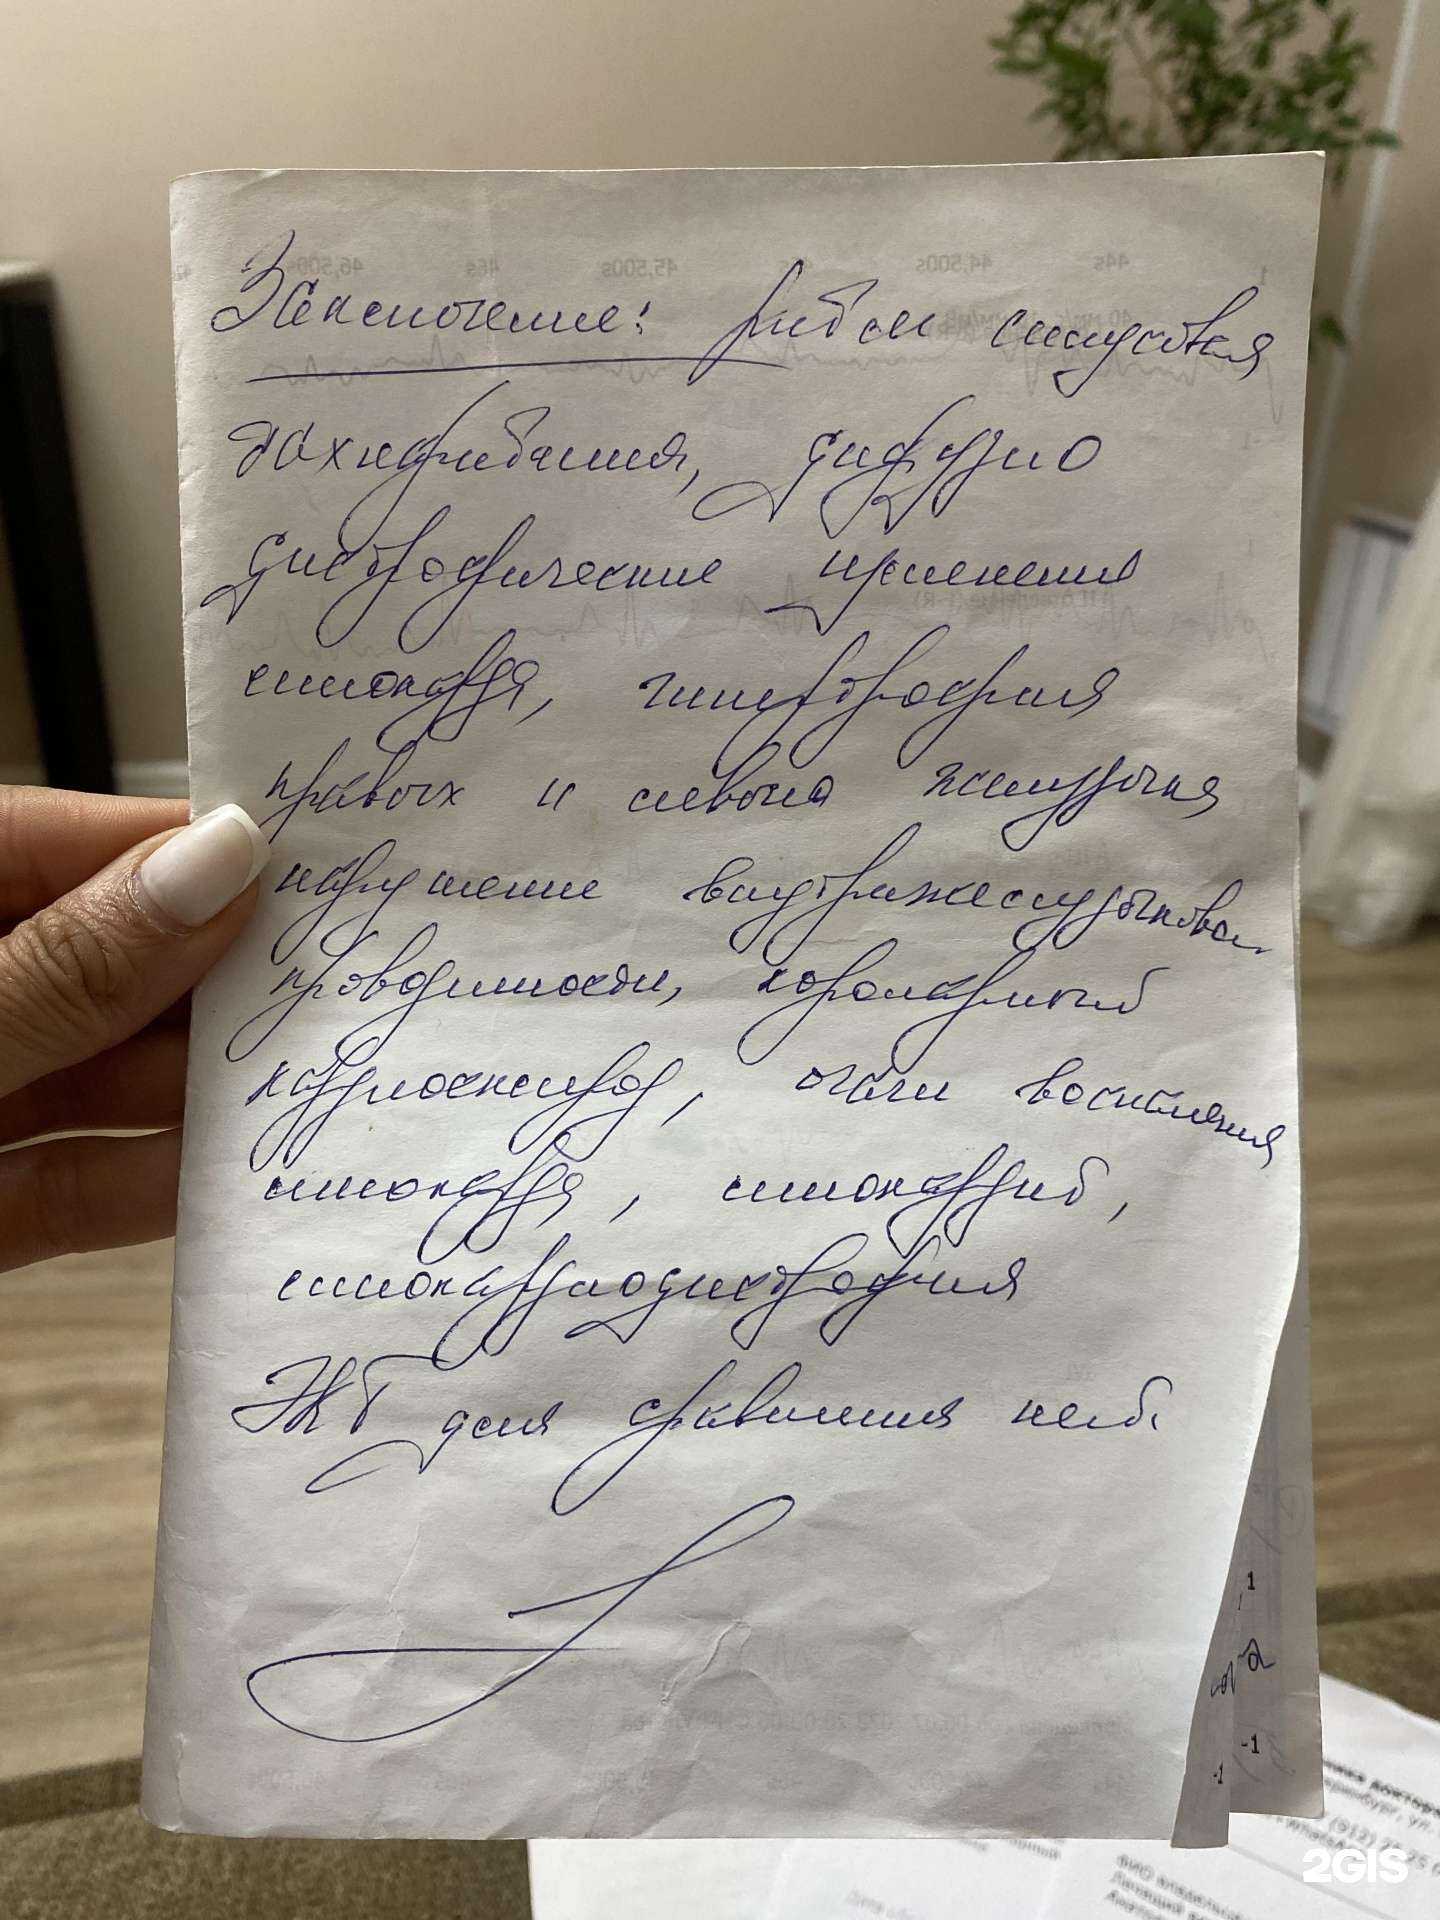 Заключение: ритм синусовая
тахикаритания, дифузио
дистрофические изменения
миокардя, гипертрофия
правых и левого желудочкя
нарушение внутрижелудычковой
проводимости, коронарный
кардиосклероз, очаги воспаления
миокардя, миокардит,
миокардиодистрофия
ЭКГ для сравнения нет.
1
-1
-1
2GIS